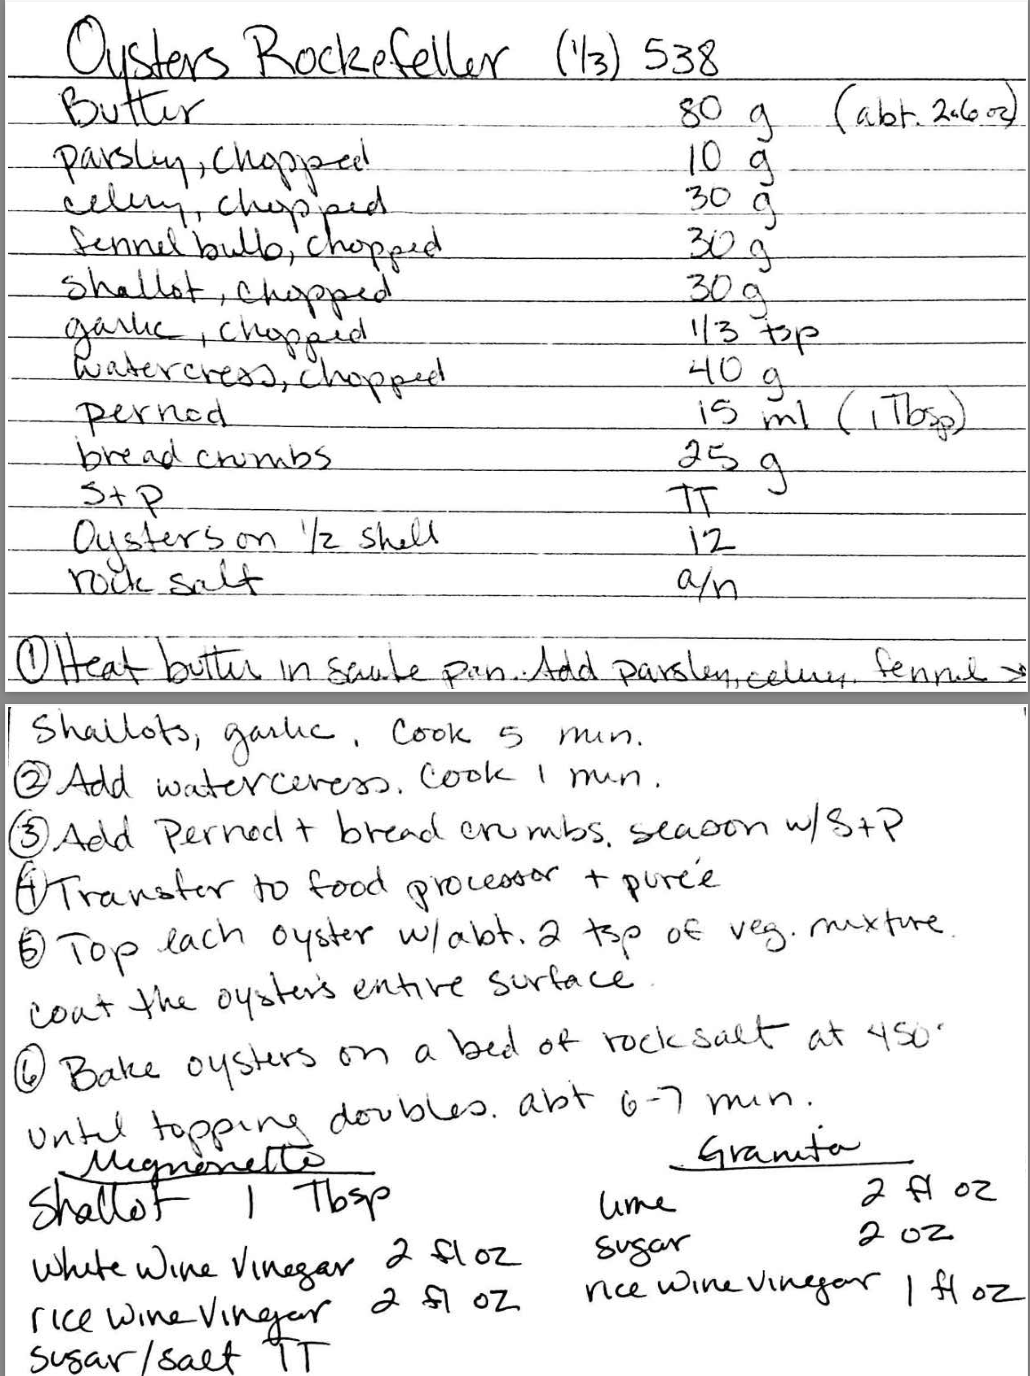 Oysters Rockefeller (1/3) 538
Butter 80 g (abt. 2.6 oz)
parsley, chopped 10 g
celery, chopped 30 g
fennel bulb, chopped 30 g
shallot, chopped 30 g
garlic, chopped 1/3 tsp
watercress, chopped 40 g
pernod 15 ml (1 Tbsp)
bread crumbs 25 g
S+P TT
Oysters on 1/2 shell 12
rock salt a/n
① Heat butter in saute pan. Add parsley, celery, fennel →
Shallots, garlic. Cook 5 min.
② Add waterceress. Cook 1 min.
③ Add Pernod + bread crumbs. season w/ S+P
④ Transfer to food processor + purée
⑤ Top each oyster w/ abt. 2 tsp of veg. mixture.
coat the oyster's entire surface.
⑥ Bake oysters on a bed of rock salt at 450°
until topping doubles. abt 6-7 min.
Mignonette
Shallot 1 Tbsp
white wine vinegar 2 fl oz
rice wine vinegar 2 fl oz
sugar/salt TT
Granita
lime 2 fl oz
sugar 2 oz
rice wine vinegar 1 fl oz